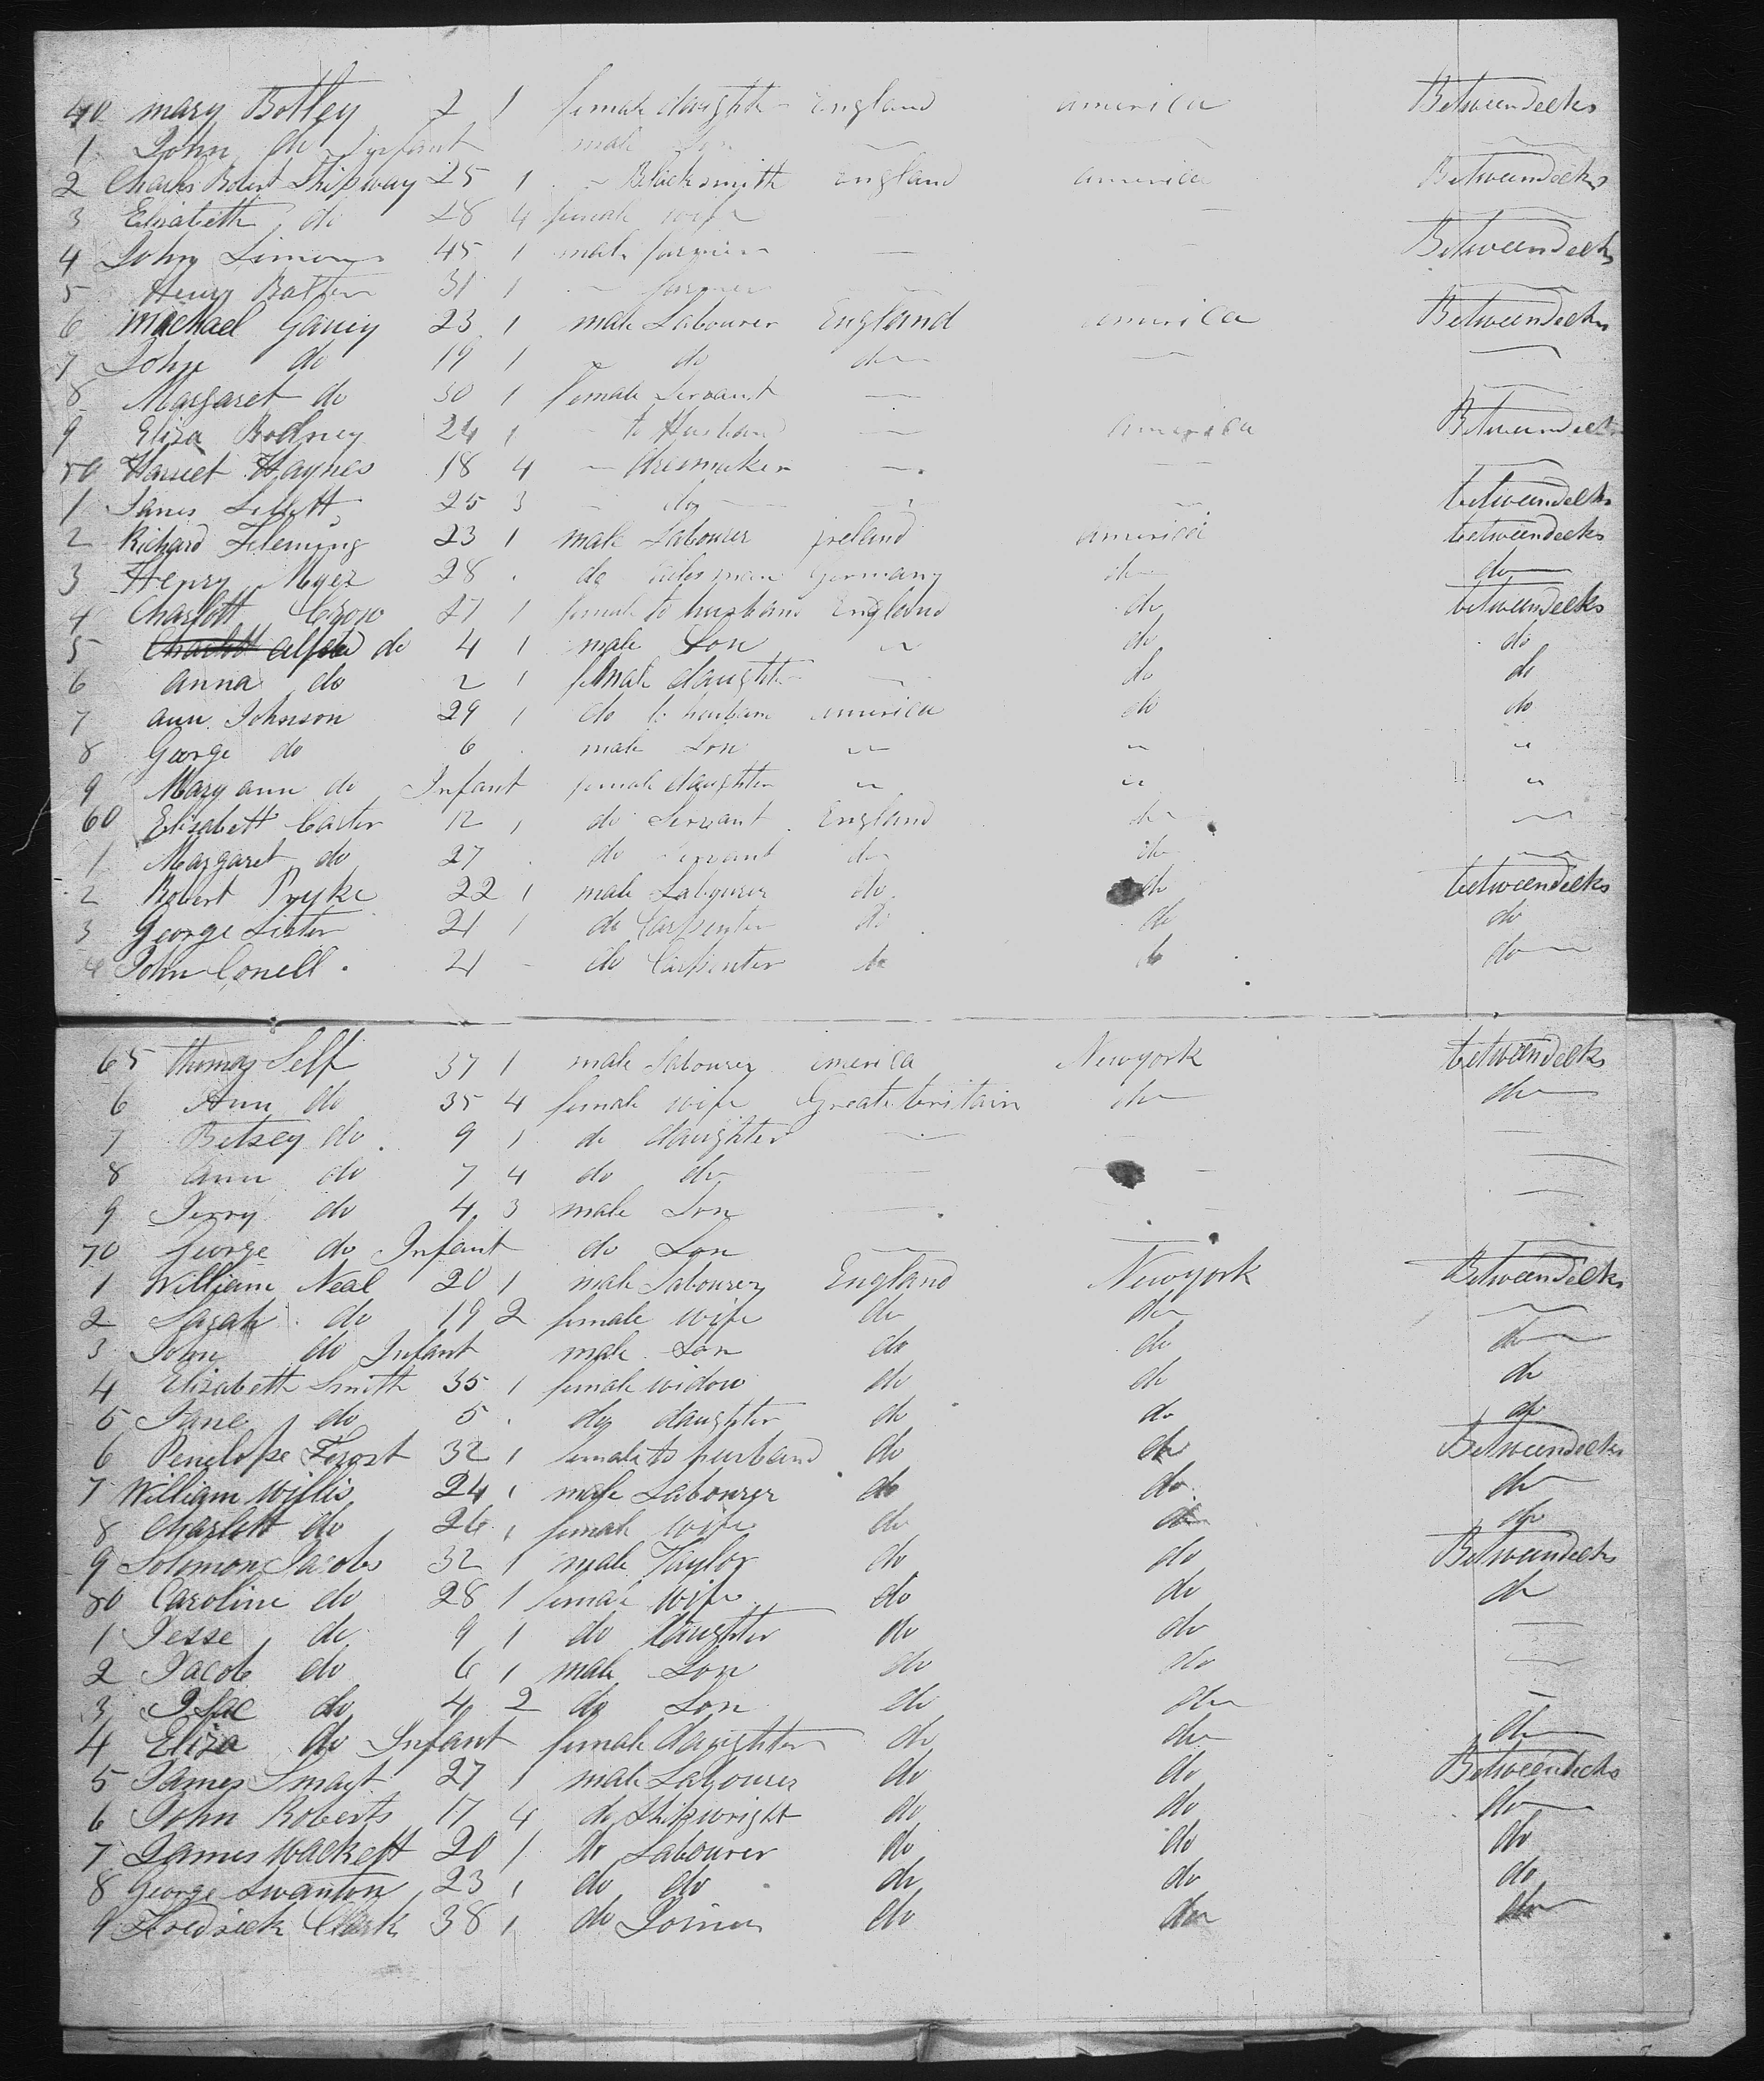 40 mary Botley 2 1 female daughter England america Betweendecks
1 John do Infant male Son
2 Charles Robert Shipway 25 1 Blacksmith England america Betweendecks
3 Elisabeth do 28 4 female wife
4 John Simons 45 1 male farmer Betweendecks
5 Henry Batten 31 1 farmer
6 Michael Gauey 23 1 male Labourer England america Betweendecks
7 John do 19 1 do do
8 Margaret do 30 1 female Servant
9 Eliza Bodney 24 1 to Husband america Betweendecks
50 Harriet Haynes 18 4 dressmaker
1 James 25 3 do betweendecks
2 Richard Fleming 23 1 male Labourer ireland america betweendecks
3 Henry Myer 28 do Germany do do
4 Charlott Crow 27 1 female to husband England do betweendecks
5 Alfred do 4 1 male Son do do
6 anna do 2 1 female daughter do do
7 ann Johnson 29 1 do to husband america do do
8 George do 6 male Son " " "
9 Mary ann do Infant female daughter " " "
60 Elisabett Carter 12 1 do Servant England do
1 Margaret do 27 do Servant do do
2 Robert Pryke 22 1 male Labourer do do betweendecks
3 George Lister 21 1 do Carpenter do do do
4 John Conell 21 do Carpenter do do do
65 thomas Self 37 1 male Labourer america Newyork betweendecks
6 Ann do 35 4 female wife Great britain do do
7 Betsey do 9 1 do daughter
8 ann do 7 4 do do
9 Jerry do 4 3 male Son
70 George do Infant do Son
1 William Neal 20 1 male Labourer England Newyork Betweendecks
2 Sarah do 19 2 female wife do do
3 John do Infant male Son do do do
4 Elizabeth Smith 35 1 female widow do do do
5 Jane do 5 do daughter do do do
6 Penelope Frost 32 1 female to husband do do Betweendecks
7 William Willis 24 1 male Labourer do do do
8 Charlott do 26 1 female wife do do do
9 Solomon Jacobs 32 1 male Taylor do do Betweendecks
80 Caroline do 28 1 female wife do do do
1 Jesse do 9 1 do daughter do do
2 Jacob do 6 1 male Son do do
3 Isac do 4 2 do Son do do
4 Eliza do Infant female daughter do do do
5 James Smart 27 1 male Labourer do do Betweendecks
6 John Roberts 17 4 do Shipwright do do do
7 James Wackett 20 1 do Labourer do do do
8 George Swanton 23 1 do do do do do
9 Fredrick Clark 38 1 do Joiner do do do